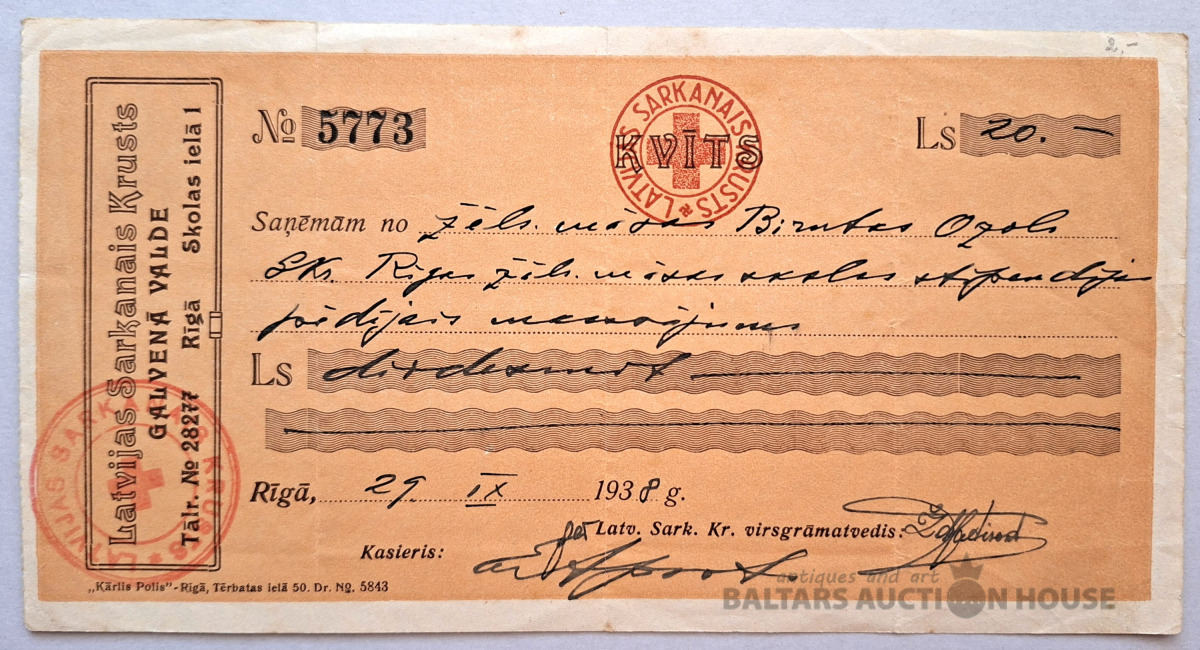 2,-
Latvijas Sarkanais Krusts
GALVENĀ VALDE
Tālr. № 28277 Rīgā Skolas ielā 1
№ 5773
LATVIJAS SARKANAIS KRUSTS
KVĪTS
Ls 20.—
Saņēmām no žēls. māsas Birutas Ozols
SKr. Rīgas žēls. māsu skolas stipendijas
pēdējais maksājums
Ls divdesmit
Rīgā, 29. IX 1938 g.
Latv. Sark. Kr. virsgrāmatvedis:
Kasieris:
LATVIJAS SARKANAIS KRUSTS
„Kārlis Polis"-Rīgā, Tērbatas ielā 50. Dr. № 5843
antiques and art
BALTARS AUCTION HOUSE